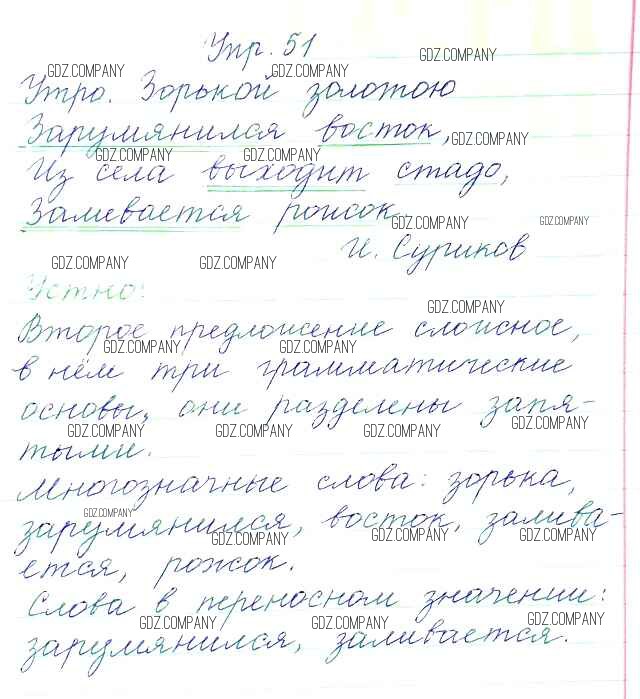 Упр. 51
GDZ.COMPANY
GDZ.COMPANY GDZ.COMPANY
Утро. Зорькой золотою
Зарумянился восток,
GDZ.COMPANY
GDZ.COMPANY GDZ.COMPANY
Из села выходит стадо,
Заливается рожок.
GDZ.COMPANY GDZ.COMPANY
И. Суриков
GDZ.COMPANY GDZ.COMPANY
Устно:
GDZ.COMPANY
Второе предложение сложное,
GDZ.COMPANY GDZ.COMPANY
в нём три грамматические
основы, они разделены запя-
GDZ.COMPANY GDZ.COMPANY GDZ.COMPANY GDZ.COMPANY
тыми.
Многозначные слова: зорька,
GDZ.COMPANY
зарумянился, восток, залива-
GDZ.COMPANY GDZ.COMPANY GDZ.COMPANY
ется, рожок.
Слова в переносном значении:
GDZ.COMPANY GDZ.COMPANY GDZ.COMPANY
зарумянился, заливается.